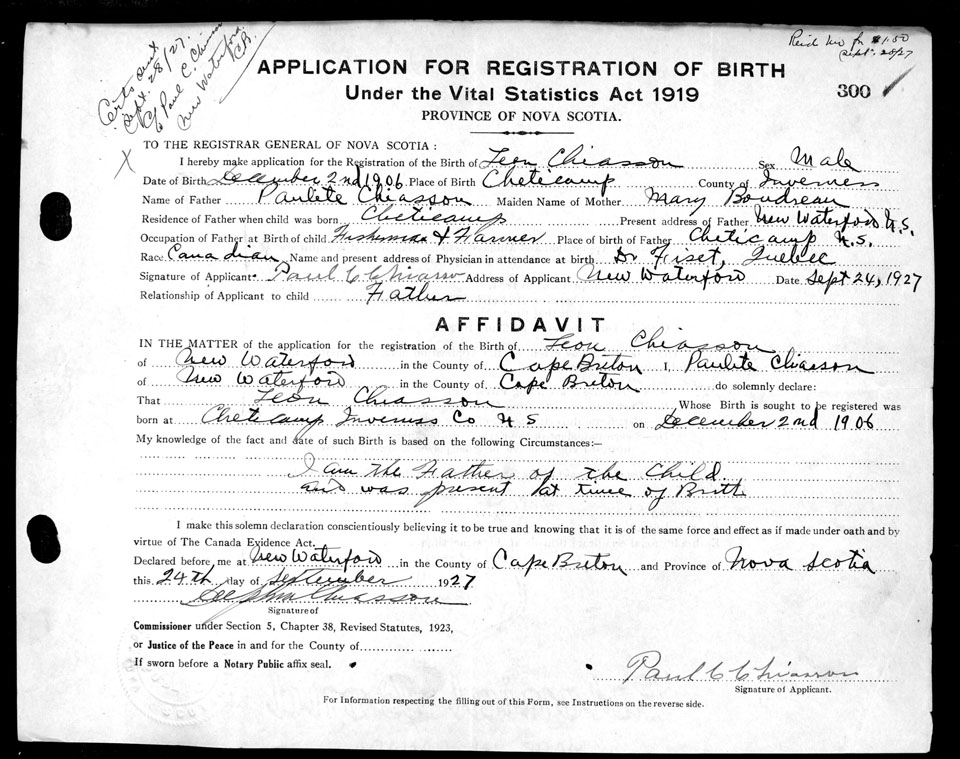 Certs sent
Sept. 28/27.
c/o Paul C. Chiasson
New Waterford.
C.B.
Recd for $1.50
Sept. 28/27
APPLICATION FOR REGISTRATION OF BIRTH
300
Under the Vital Statistics Act 1919
PROVINCE OF NOVA SCOTIA.
X
TO THE REGISTRAR GENERAL OF NOVA SCOTIA :
I hereby make application for the Registration of the Birth of Leon Chiasson Sex Male
Date of Birth December 2nd 1906 Place of Birth Cheticamp County of Inverness
Name of Father Paulite Chiasson Maiden Name of Mother Mary Boudreau
Residence of Father when child was born Cheticamp Present address of Father New Waterford N.S.
Occupation of Father at Birth of child Fisherman & Farmer Place of birth of Father Cheticamp N.S.
Race Canadian Name and present address of Physician in attendance at birth Dr Fiset, Quebec
Signature of Applicant Paul C Chiasson Address of Applicant New Waterford Date Sept 24, 1927
Relationship of Applicant to child Father
AFFIDAVIT
IN THE MATTER of the application for the registration of the Birth of Leon Chiasson
of New Waterford in the County of Cape Breton I, Paulite Chiasson
of New Waterford in the County of Cape Breton do solemnly declare:
That Leon Chiasson Whose Birth is sought to be registered was
born at Cheticamp Inverness Co N S on December 2nd 1906
My knowledge of the fact and date of such Birth is based on the following Circumstances:—
I am the Father of the Child
and was present at time of Brith
I make this solemn declaration conscientiously believing it to be true and knowing that it is of the same force and effect as if made under oath and by
virtue of The Canada Evidence Act.
Declared before me at New Waterford in the County of Cape Breton and Province of Nova Scotia
this 24th day of September 1927
Chiasson
Signature of
Commissioner under Section 5, Chapter 38, Revised Statutes, 1923,
or Justice of the Peace in and for the County of
If sworn before a Notary Public affix seal.
Paul C Chiasson
Signature of Applicant.
For Information respecting the filling out of this Form, see Instructions on the reverse side.